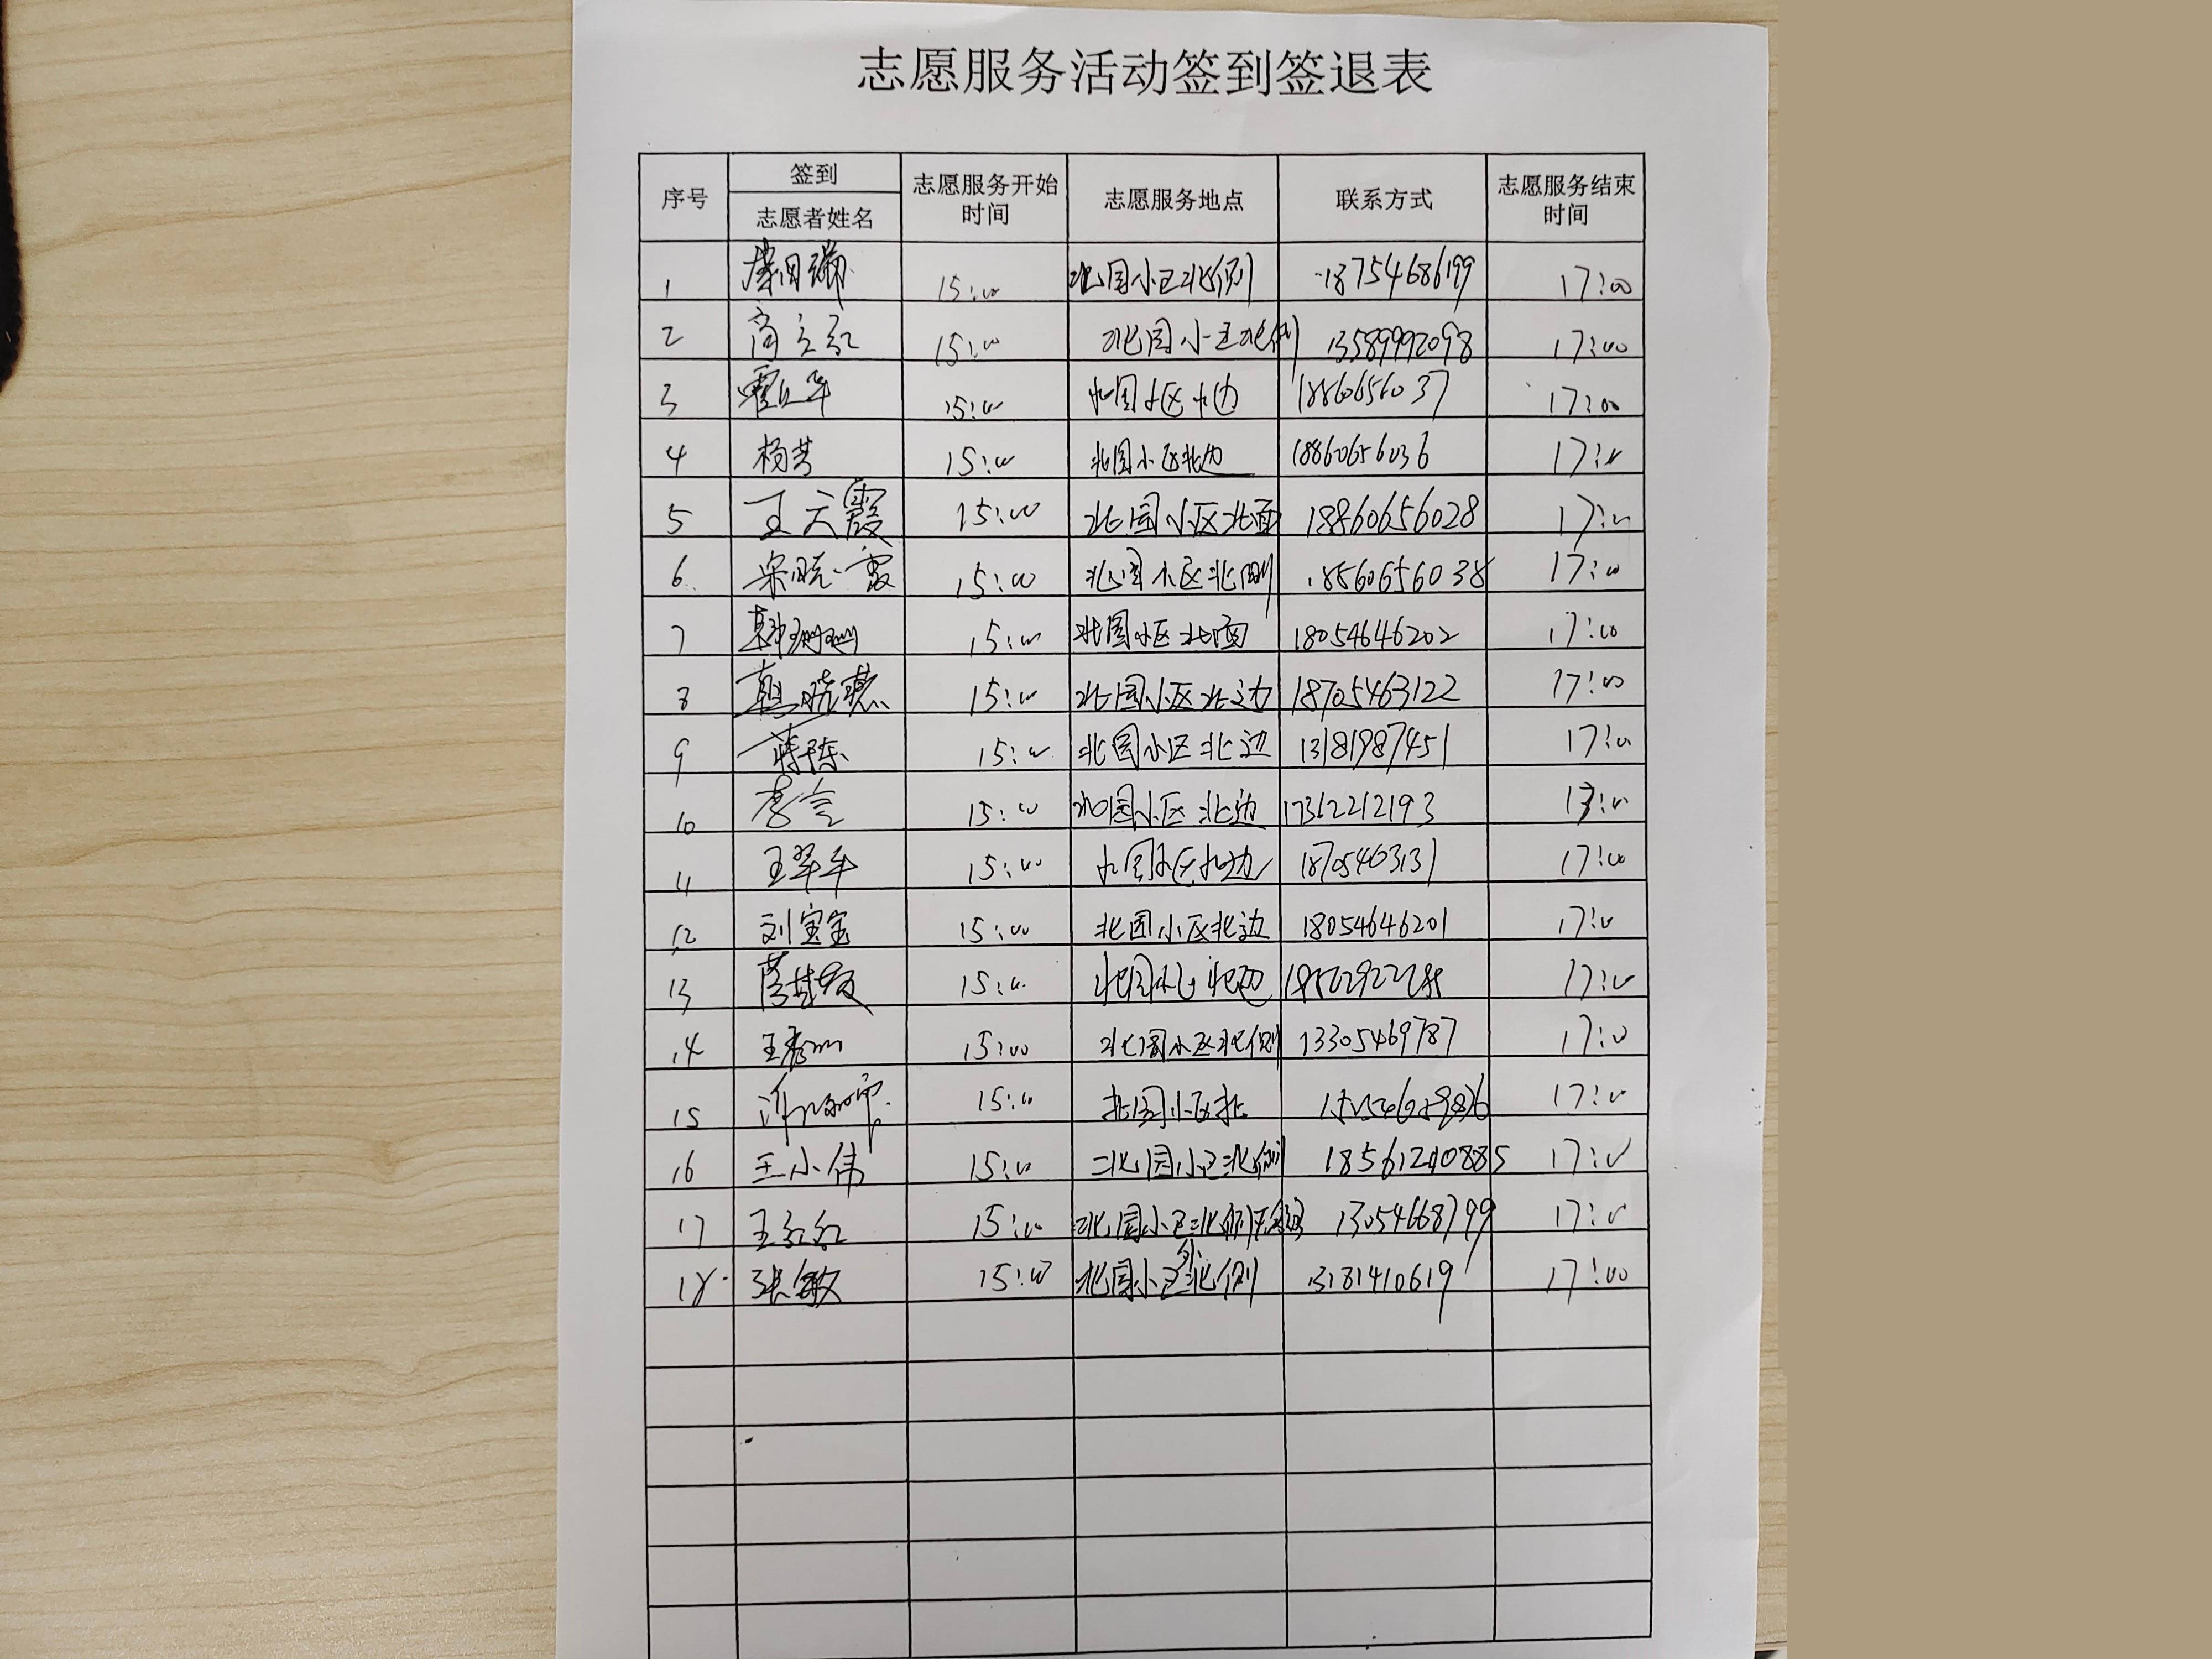 志愿服务活动签到签退表
序号 签到 志愿者姓名 志愿服务开始时间 志愿服务地点 联系方式 志愿服务结束时间
1 15:00 北国小区北侧 18754686199 17:00
2 商立红 15:00 北国小区北侧 13589992098 17:00
3 15:00 北国小区北边 18860656037 17:00
4 杨芳 15:00 北国小区北边 18860656036 17:00
5 王天霞 15:00 北国小区北面 18860656028 17:00
6 宋晓霞 15:00 北国小区北侧 18860656038 17:00
7 韩珊珊 15:00 北国小区北面 18054646202 17:00
8 15:00 北国小区北边 18705463122 17:00
9 蒋陈 15:00 北国小区北边 13181987451 17:00
10 15:00 北国小区北边 17362212193 17:00
11 王翠平 15:00 北国小区北边 18705463131 17:00
12 刘宝宝 15:00 北国小区北边 18054646201 17:00
13 15:00 北国小区北边 17:00
14 15:00 北国小区北侧 13305469787 17:00
15 15:00 北国小区北 17:00
16 王小伟 15:00 北国小区北侧 18561240885 17:00
17 王红红 15:00 北国小区北侧 13054668799 17:00
18 张敏 15:00 北国小区北侧 13181410619 17:00